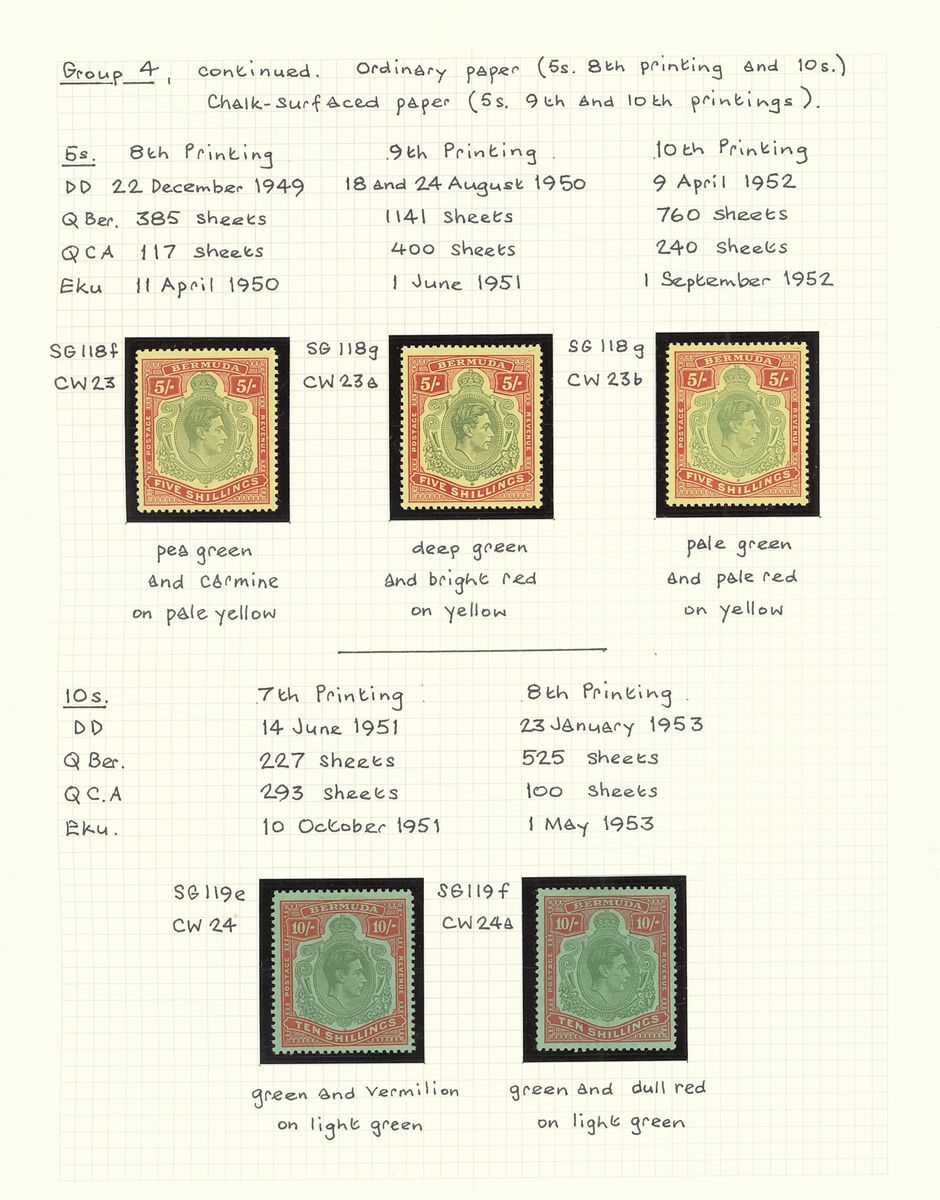 Group 4, continued. Ordinary paper (5s. 8th printing and 10s.)
Chalk-surfaced paper (5s. 9th and 10th printings).
5s. 8th Printing 9th Printing 10th Printing
DD 22 December 1949 18 and 24 August 1950 9 April 1952
Q Ber. 385 sheets 1141 sheets 760 sheets
QCA 117 sheets 400 sheets 240 sheets
Eku 11 April 1950 1 June 1951 1 September 1952
SG118f SG118g SG118g
CW23 CW23a CW23b
BERMUDA
5/- 5/-
POSTAGE REVENUE
FIVE SHILLINGS
BERMUDA
5/- 5/-
POSTAGE REVENUE
FIVE SHILLINGS
BERMUDA
5/- 5/-
POSTAGE REVENUE
FIVE SHILLINGS
pea green
and carmine
on pale yellow
deep green
and bright red
on yellow
pale green
and pale red
on yellow
10s. 7th Printing 8th Printing
DD 14 June 1951 23 January 1953
Q Ber. 227 sheets 525 sheets
Q C.A 293 sheets 100 sheets
Eku. 10 October 1951 1 May 1953
SG119e SG119f
CW24 CW24a
BERMUDA
10/- 10/-
POSTAGE REVENUE
TEN SHILLINGS
BERMUDA
10/- 10/-
POSTAGE REVENUE
TEN SHILLINGS
green and vermilion
on light green
green and dull red
on light green